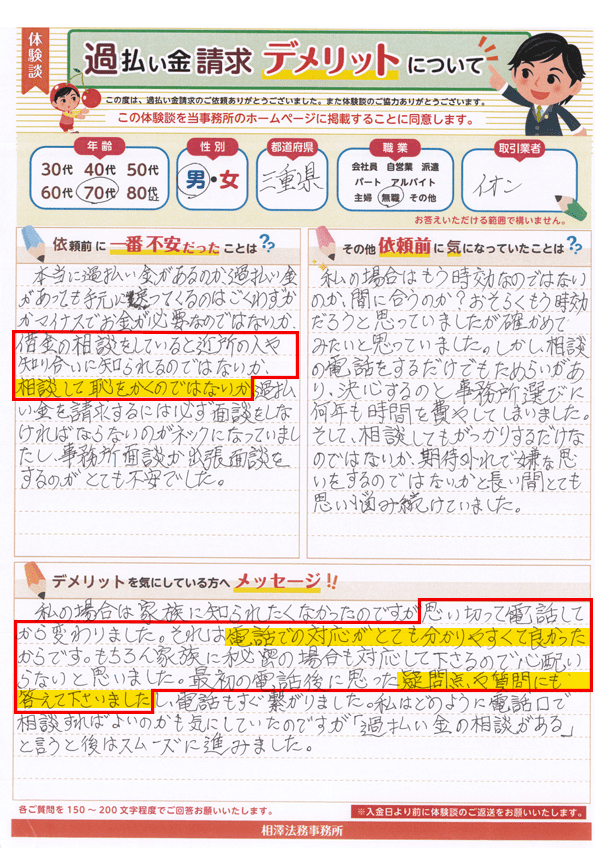 体験談
過払い金請求 デメリットについて
この度は、過払い金請求のご依頼ありがとうございました。また体験談のご協力ありがとうございます。
この体験談を当事務所のホームページに掲載することに同意します。
年齢
30代 40代 50代
60代 70代 80代以上
性別
男・女
都道府県
三重県
職業
会社員 自営業 派遣
パート アルバイト
主婦 無職 その他
取引業者
イオン
お答えいただける範囲で構いません。
依頼前に一番不安だったことは??
本当に過払い金があるのか、過払い金
があっても手元に残ってくるのはごくわずか
かマイナスでお金が必要なのではないか、
借金の相談をしていると近所の人や
知り合いに知られるのではないか、
相談して恥をかくのではないか過払
い金を請求するには必ず面談をしな
ければならないのがネックになっていまし
たし、事務所面談か出張面談を
するのがとても不安でした。
その他依頼前に気になっていたことは??
私の場合はもう時効なのではない
のか、間に合うのか？おそらくもう時効
だろうと思っていましたが確かめて
みたいと思っていました。しかし、相談
の電話をするだけでもためらいがあ
り、決心するのと事務所選びに
何年も時間を費やしてしまいました。
そして、相談してもがっかりするだけな
のではないか、期待外れで嫌な思
いをするのではないかと長い間とても
思い悩み続けていました。
デメリットを気にしている方へ メッセージ!!
私の場合は家族に知られたくなかったのですが思い切って電話して
から変わりました。それは電話での対応がとても分かりやすくて良かった
からです。もちろん家族に秘密の場合も対応して下さるので心配い
らないと思いました。最初の電話後に思った疑問点や質問にも
答えて下さいましたし、電話もすぐ繋がりました。私はどのように電話口で
相談すればよいのかも気にしていたのですが「過払い金の相談がある」
と言うと後はスムーズに進みました。
各ご質問を150～200文字程度でご回答お願いいたします。
※入金日より前に体験談のご返送をお願いいたします。
相澤法務事務所